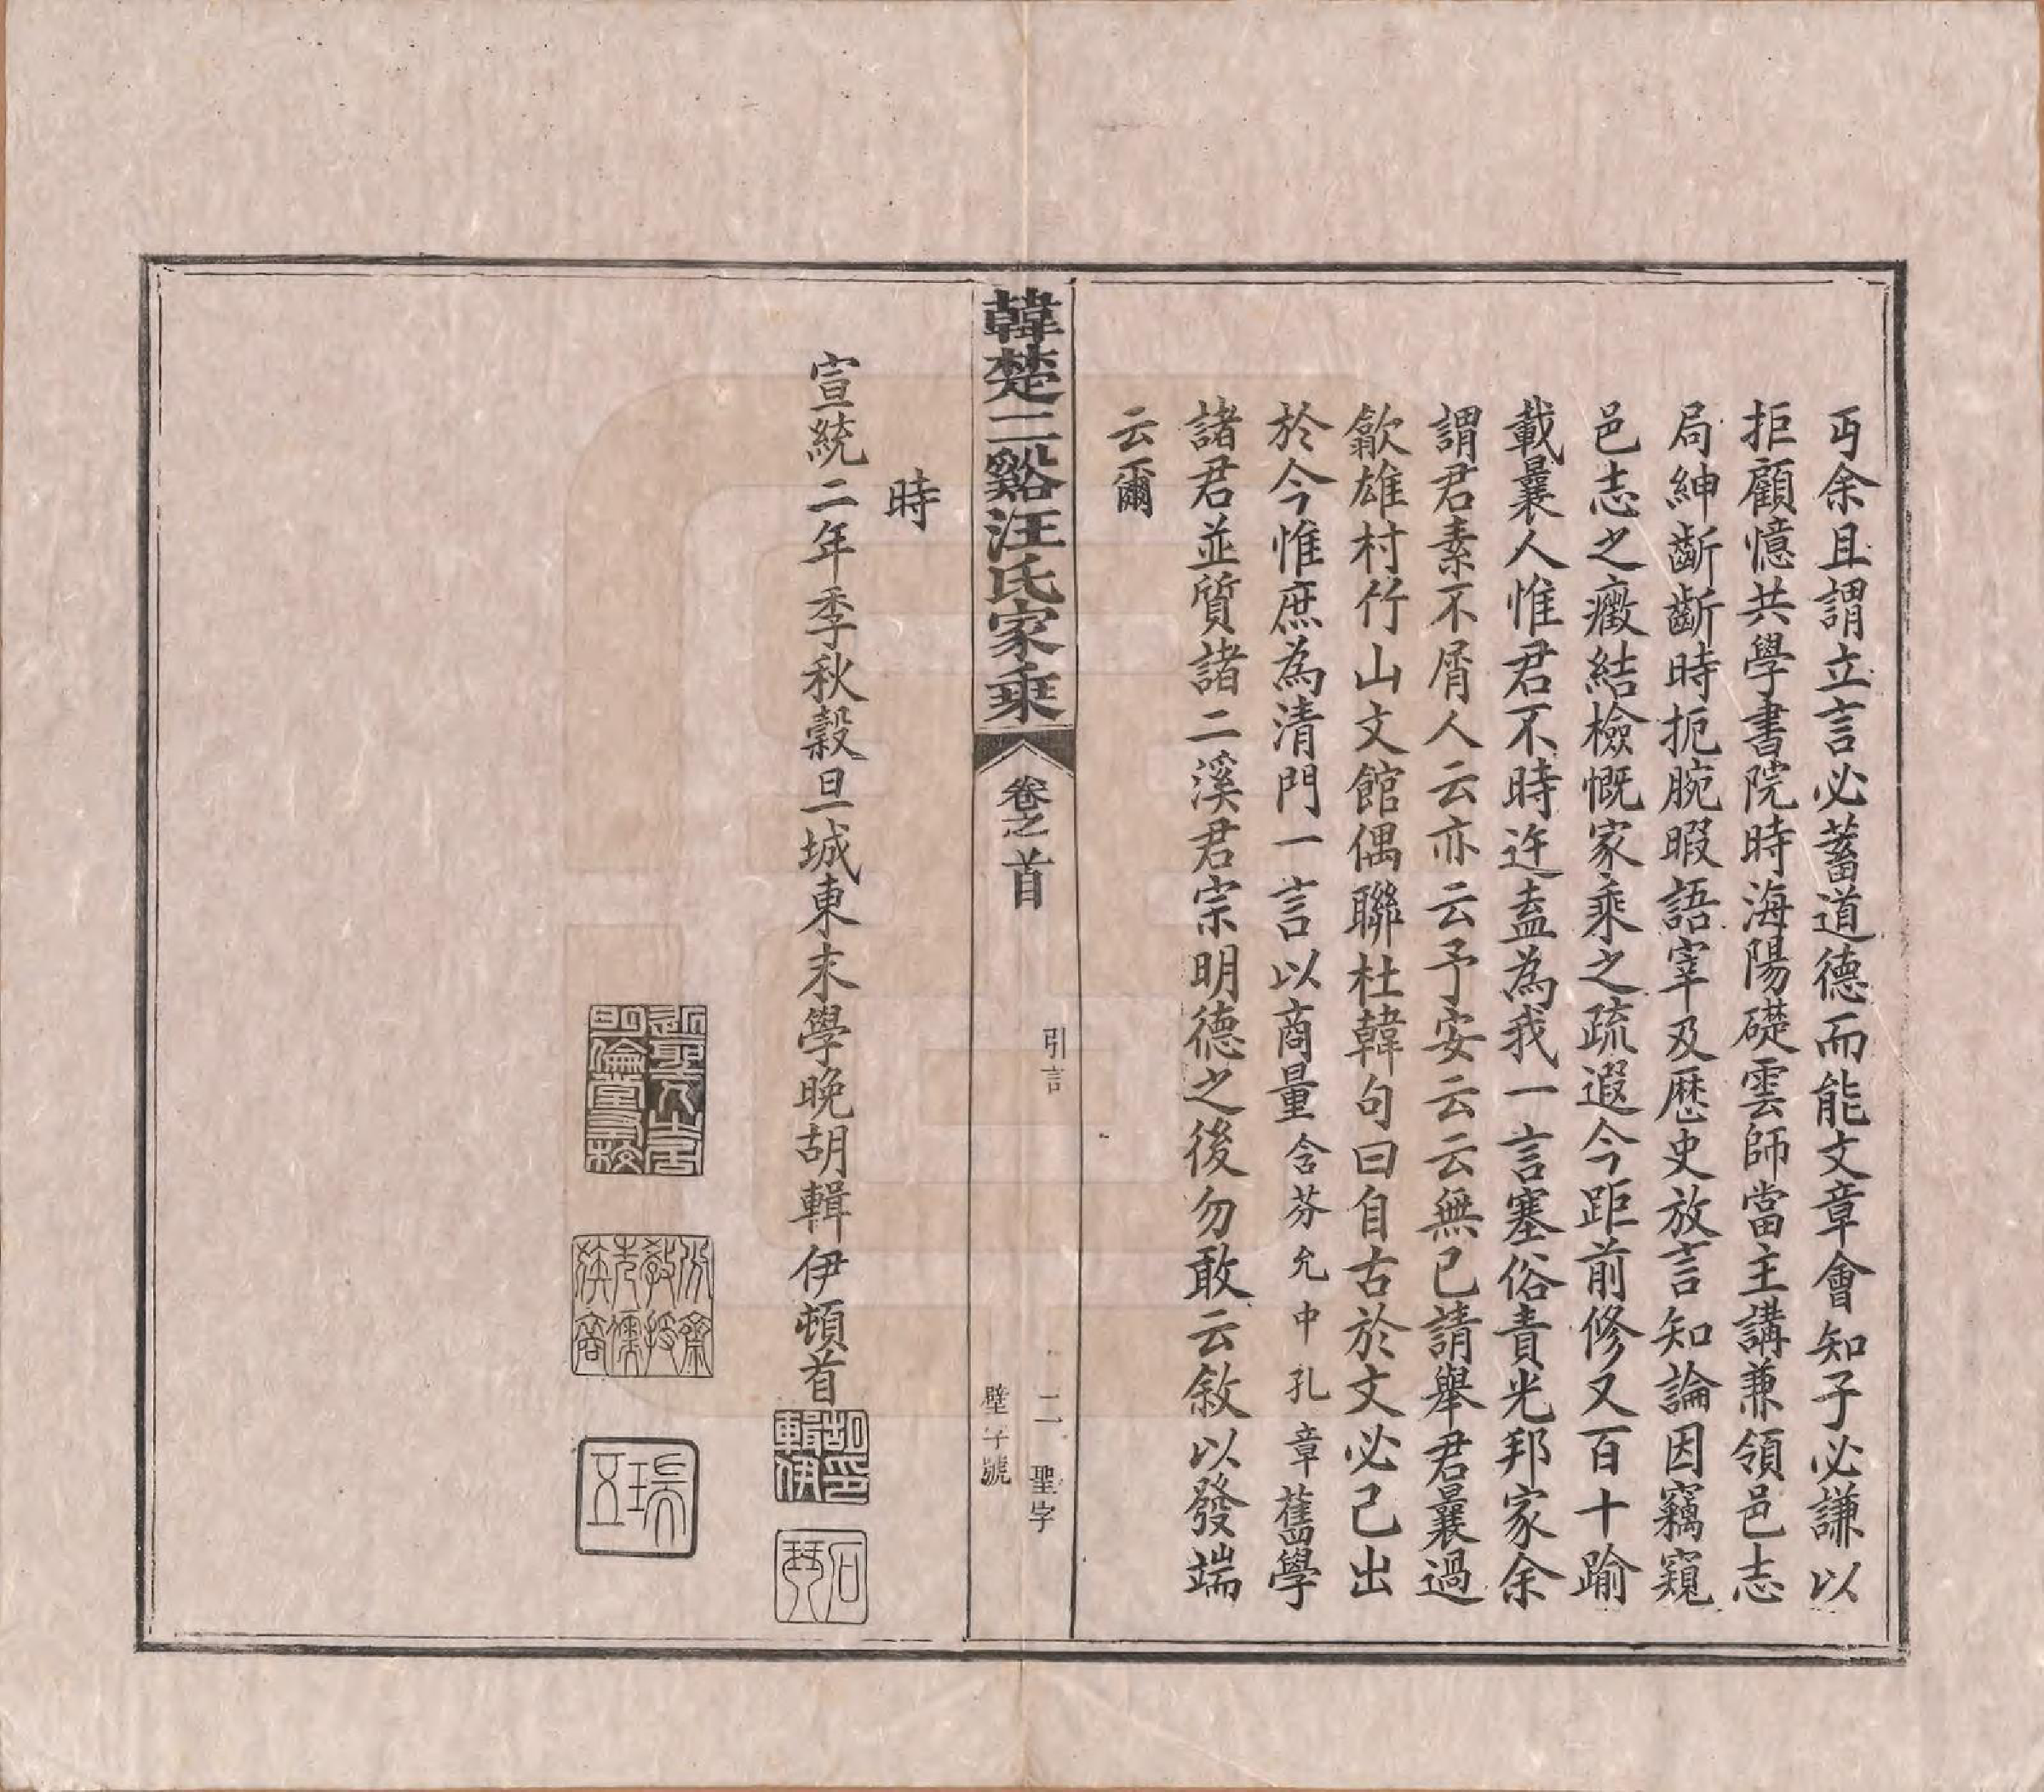 丐余且謂立言必蓄道德而能文章會知子必謙以
拒顧憶共學書院時海陽礎雲師當主講兼領邑志
局紳齗齗時扼腕暇語宰及歷史放言知論因竊窺
邑志之癥結檢慨家乘之疏遐今距前修又百十踰
載曩人惟君不時迕盍為我一言塞俗責光邦家余
謂君素不屑人云亦云予安云云無已請舉君曩過
歙雄村竹山文館偶聯杜韓句曰自古於文必己出
於今惟庶為清門一言以商量含芬允中孔章舊學
諸君並質諸二溪君宗明德之後勿敢云敘以發端
云爾
韓楚二谿汪氏家乘
卷之首
引言
二
聖字
壁字號
時
宣統二年季秋穀旦城東末學晚胡輯伊頓首
胡印輯伊
石琴